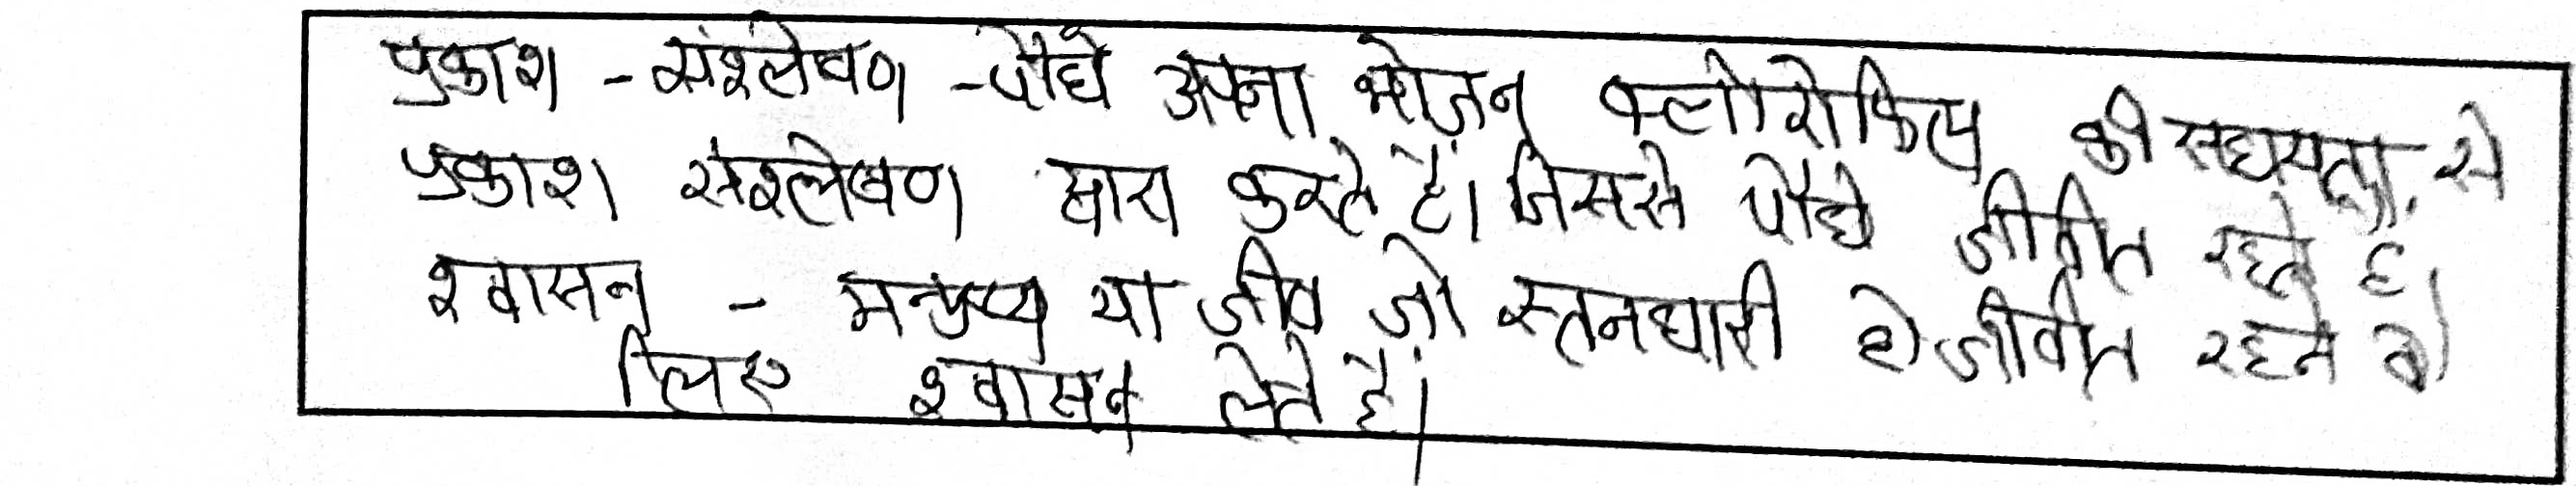 प्रकाश - संश्लेषण - पौधे अपना भोजन क्लोरोफिल की सहायता से
प्रकाश संश्लेषण द्वारा करते है। जिससे पौधे जीवीत रहते है।
श्वासन - मनुष्य या जीव जो स्तनधारी हो जीवीत रहने के
लिए श्वासन लेते है।